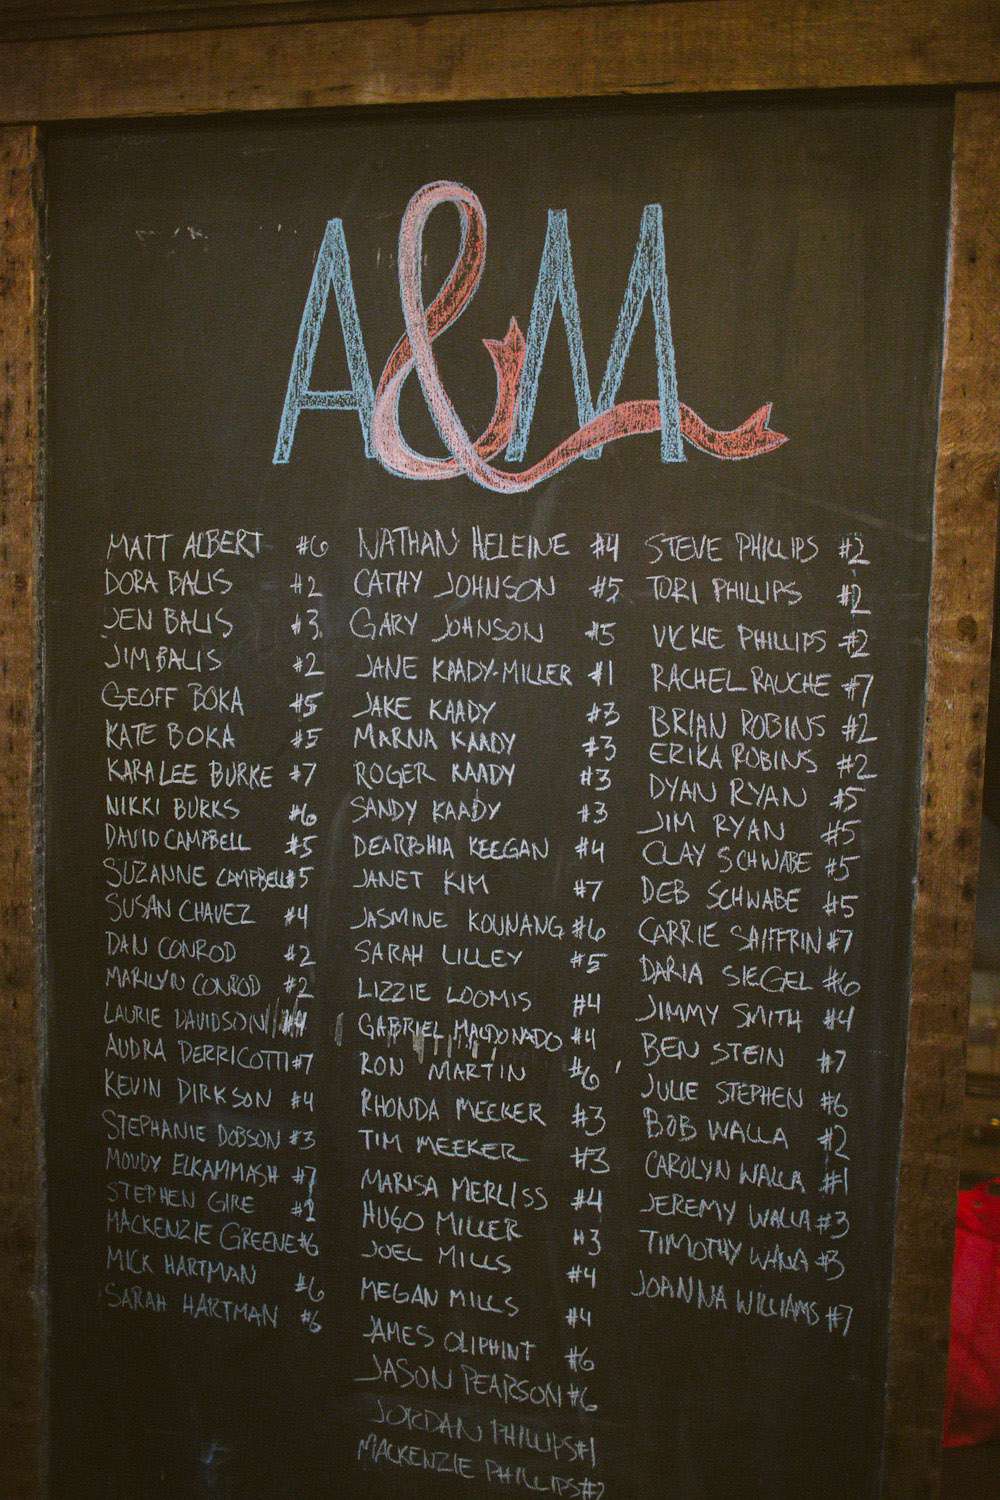 A&M
MATT ALBERT #6
DORA BALIS #2
JEN BALIS #3
JIM BALIS #2
GEOFF BOKA #5
KATE BOKA #5
KARALEE BURKE #7
NIKKI BURKS #6
DAVID CAMPBELL #5
SUZANNE CAMPBELL #5
SUSAN CHAVEZ #4
DAN CONROD #2
MARILYN CONROD #2
LAURIE DAVIDSON #4
AUDRA DERRICOTT #7
KEVIN DIRKSON #4
STEPHANIE DOBSON #3
MOUDY ELKAMMASH #7
STEPHEN GIRE
MACKENZIE GREENE #6
MICK HARTMAN #6
SARAH HARTMAN #6
NATHAN HELEINE #4
CATHY JOHNSON #5
GARY JOHNSON #5
JANE KAADY-MILLER #1
JAKE KAADY #3
MARNA KAADY #3
ROGER KAADY #3
SANDY KAADY #3
DEARBHIA KEEGAN #4
JANET KIM #7
JASMINE KOUNANG #6
SARAH LILLEY #5
LIZZIE LOOMIS #4
GABRIEL MALDONADO #4
RON MARTIN #6
RHONDA MEEKER #3
TIM MEEKER #3
MARISA MERLISS #4
HUGO MILLER #3
JOEL MILLS #4
MEGAN MILLS #4
JAMES OLIPHINT #6
JASON PEARSON #6
JORDAN PHILLIPS #1
MACKENZIE PHILLIPS #2
STEVE PHILLIPS #2
TORI PHILLIPS #2
VICKIE PHILLIPS #2
RACHEL RAUCHE #7
BRIAN ROBINS #2
ERIKA ROBINS #2
DYAN RYAN #5
JIM RYAN #5
CLAY SCHWABE #5
DEB SCHWABE #5
CARRIE SAIFFRIN #7
DARIA SIEGEL #6
JIMMY SMITH #4
BEN STEIN #7
JULIE STEPHEN #6
BOB WALLA #2
CAROLYN WALLA #1
JEREMY WALLA #3
TIMOTHY WANA #3
JOANNA WILLIAMS #7